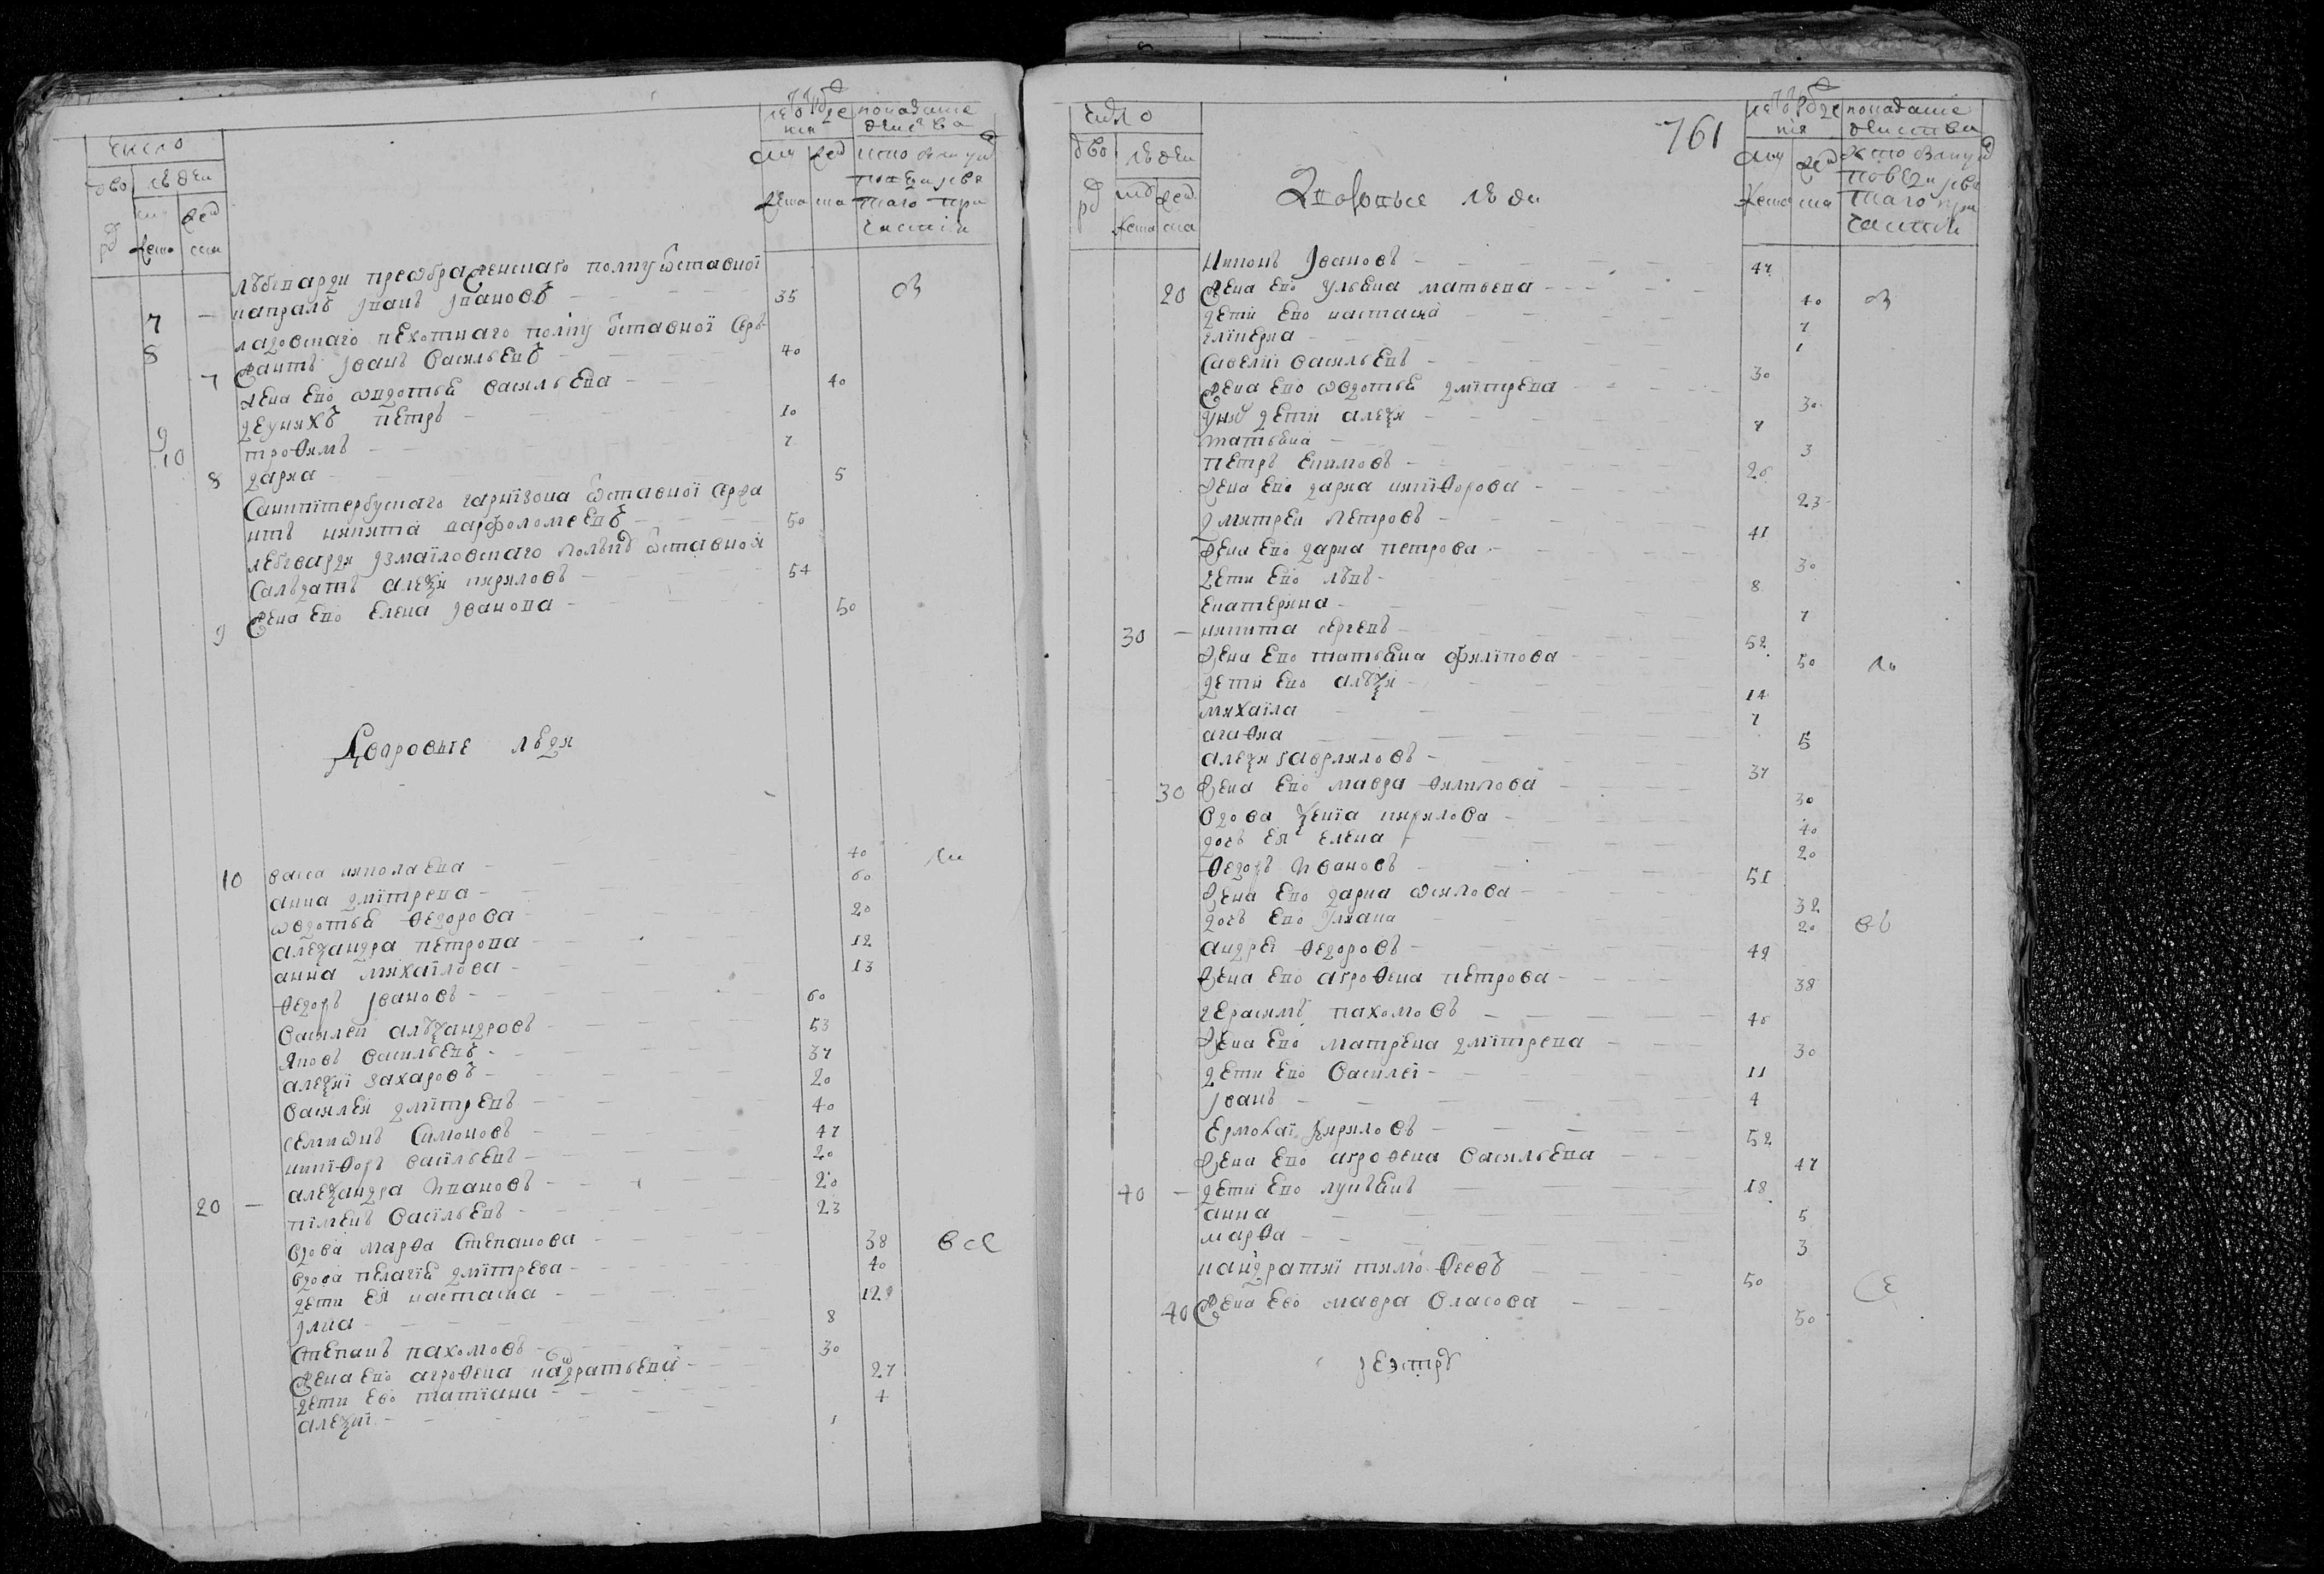 число
дво
людеи
ръ
му
жеска
жен
ска
лето
рожде
ния
показание
действа
му
жеска
жен
ска
кто был у
исповеди и свя
таго при
частия
лѣбгвардии преображенскаго полку ѿставной
7 — капралъ Іванъ Івановъ — 35
ладоскаго пехотнаго полку ѿставной сер-
8 жантъ Іванъ Васильевъ — 40
7 жена ево ѡвдотья Васильева — 40
9 Петръ — 10
10 троѳимъ — 7
8 дарья — 5
Санктпитербускаго гарнизона ѿставной сержа
нтъ никита варфоломеевъ — 50
лебгвардии Измаиловскаго полку ѿставной
Салдатъ алеѯей кириловъ — 54
9 жена ево Елена Іванова — 50
Дворовые люди
10 васа николаева — 40
анна дмитрева — 60
ѡвдотья ѳедорова — 20
алеѯандра петрова — 12
анна михаилова — 13
ѳедоръ Івановъ — 60
Василей алеѯандровъ — 53
Яковъ Васильевъ — 37
алеѯей Захаровъ — 20
Василей дмитревъ — 40
семионъ Симоновъ — 47
никиѳоръ васильевъ — 20
алеѯандра Ивановъ — 20
20 — пименъ Васильевъ — 23
вдова марѳа Степанова — 38 все
вдова пелагия дмитрева — 40
дети ея настасья — 12
Илья — 8
Степанъ пахомовъ — 30
жена ево агроѳена кандратьева — 27
дети ево татиана — 4
алеѯей — 1
число
дво
ръ
людеи
муж
жен
жеска
ска
Дворовые люди
761
лето
рожде
ния
показание
действа
му
жен
жеска
ска
кто был у
исповеди и свя
таго при
частия
Никонъ Івановъ — 47
20 жена ево Ульяна матвева — 40
дети ево настасья — 7
гликерия — 1
Савелий васильевъ — 30
жена ево ѡвдотья дмитрева — 30
у них дети алеѯей — 8
татьяна — 3
Петръ Екимовъ — 26
жена ево дарья никиѳорова — 23
дмитрей Петровъ — 41
жена ево дарья петрова — 30
дети ево левъ — 8
Екатерина — 7
30 — никита сергевъ — 52
жена ево татьяна филипова — 50
дети ево алеѯей — 14
михаила — 7
агаѳья — 5
алеѯей гавриловъ — 37
30 жена ево мавра ѳилипова — 30
вдова ѯения кирилова — 40
дочь ея елена — 20
ѳедоръ Ивановъ — 51
жена ево дарья ѡсипова — 32
дочь ево Ульяна — 20
андрей ѳедоровъ — 49
жена ево агроѳена петрова — 38
герасимъ пахомовъ — 40
жена ево матрена дмитрева — 30
дети ево Василей — 11
Іванъ — 4
Ермолай кириловъ — 52
жена ево агроѳена Васильева — 47
40 — дети ево лукьянъ — 18
анна — 5
марѳа — 3
кандратей тимоѳеевъ — 50
40 жена ево мавра власова — 50